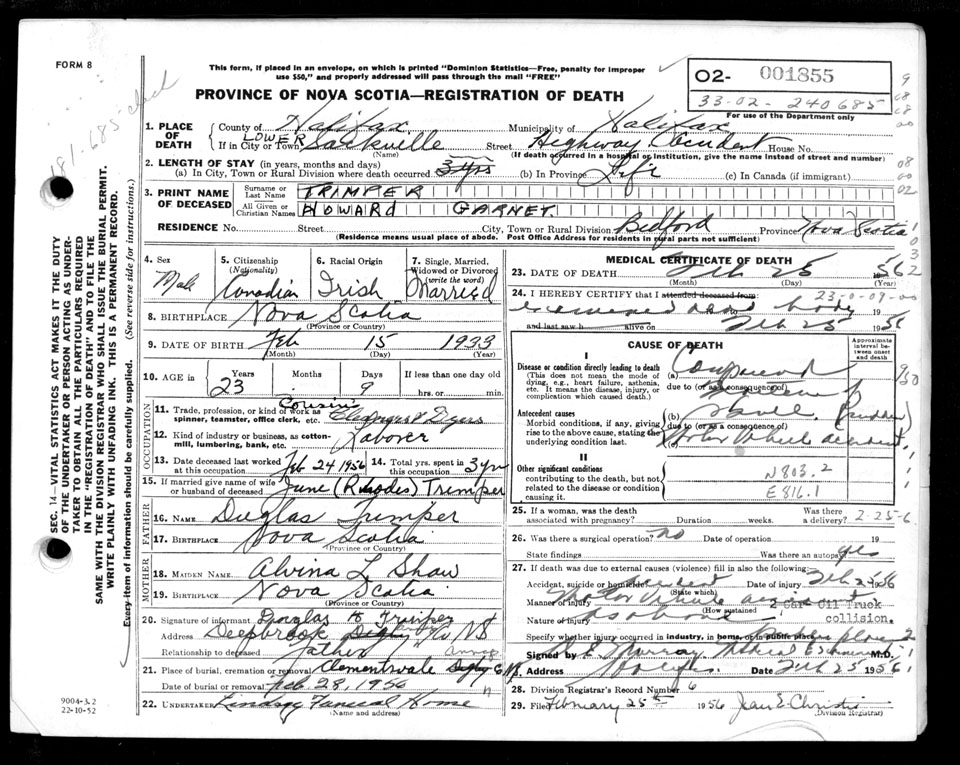 FORM 8
This form, if placed in an envelope, on which is printed "Dominion Statistics—Free, penalty for improper
use $50," and properly addressed will pass through the mail "FREE"
02- 001855
33-02- 240685
For use of the Department only
PROVINCE OF NOVA SCOTIA—REGISTRATION OF DEATH
1. PLACE OF DEATH
County of Halifax Municipality of Halifax
If in City or Town LOWER Sackville Street Highway Accident House No.
(Name) (If death occurred in a hospital or institution, give the name instead of street and number)
2. LENGTH OF STAY (in years, months and days)
(a) In City, Town or Rural Division where death occurred 3 yrs (b) In Province Life (c) In Canada (if immigrant)
3. PRINT NAME OF DECEASED
Surname or Last Name TRIMPER
All Given or Christian Names HOWARD GARNET
RESIDENCE No. Street City, Town or Rural Division Bedford Province Nova Scotia
(Residence means usual place of abode. Post Office Address for residents in rural parts not sufficient)
4. Sex Male
5. Citizenship (Nationality) Canadian
6. Racial Origin Irish
7. Single, Married, Widowed or Divorced (write the word) Married
8. BIRTHPLACE Nova Scotia
(Province or Country)
9. DATE OF BIRTH Feb 15 1933
(Month) (Day) (Year)
10. AGE in Years Months Days If less than one day old
23 9 hrs. or min.
OCCUPATION
11. Trade, profession, or kind of work as spinner, teamster, office clerk, etc.
12. Kind of industry or business, as cotton-mill, lumbering, bank, etc. Laborer
13. Date deceased last worked at this occupation Feb 24 1956
14. Total yrs. spent in this occupation 3 yrs
15. If married give name of wife or husband of deceased June (Rhodes) Trimper
FATHER
16. NAME Duglas Trimper
17. BIRTHPLACE Nova Scotia
(Province or Country)
MOTHER
18. MAIDEN NAME Alvina L Shaw
19. BIRTHPLACE Nova Scotia
(Province or Country)
20. Signature of informant Douglas H Trimper
Address Deepbrook NS
Relationship to deceased Father
21. Place of burial, cremation or removal Clementsvale
Date of burial or removal Feb. 28, 1956
22. UNDERTAKER Lindsay Funeral Home
(Name and address)
MEDICAL CERTIFICATE OF DEATH
23. DATE OF DEATH Feb 25 1956
(Month) (Day) (Year)
24. I HEREBY CERTIFY that I attended deceased from 23-0-09-00
examined body 19
and last saw h alive on Feb 25 1956
CAUSE OF DEATH
Approximate interval between onset and death
I
Disease or condition directly leading to death
(This does not mean the mode of dying, e.g., heart failure, asthenia, etc. It means the disease, injury, or complication which caused death.)
(a) Compound
due to (or as a consequence of)
Antecedent causes
Morbid conditions, if any, giving rise to the above cause, stating the underlying condition last.
(b) Skull
due to (or as a consequence of)
Motor Vehicle accident
II
Other significant conditions contributing to the death, but not related to the disease or condition causing it.
N 803.2
E 816.1
25. If a woman, was the death associated with pregnancy? Duration weeks. Was there a delivery? 2-25-6
26. Was there a surgical operation? No Date of operation 19
State findings Was there an autopsy yes
27. If death was due to external causes (violence) fill in also the following:
Accident, suicide or homicide? Accident Date of injury Feb 25 1956
(State which)
Manner of injury Motor Vehicle accident
(How sustained)
2 Car Oil Truck
Nature of injury as above collision.
Specify whether injury occurred in industry, in home, or in public place
Signed by E Murray Medical Examiner M.D.
Address Date Feb 25 1956
28. Division Registrar's Record Number 6
29. Filed February 25th 1956 Jean E. Christie
(Division Registrar)
SEC. 14—VITAL STATISTICS ACT MAKES IT THE DUTY
OF THE UNDERTAKER OR PERSON ACTING AS UNDER-
TAKER TO OBTAIN ALL THE PARTICULARS REQUIRED
IN THE "REGISTRATION OF DEATH" AND TO FILE THE
SAME WITH THE DIVISION REGISTRAR WHO SHALL ISSUE THE BURIAL PERMIT.
WRITE PLAINLY WITH UNFADING INK. THIS IS A PERMANENT RECORD.
Every item of information should be carefully supplied. (See reverse side for instructions.)
9004-3.2
22-10-52